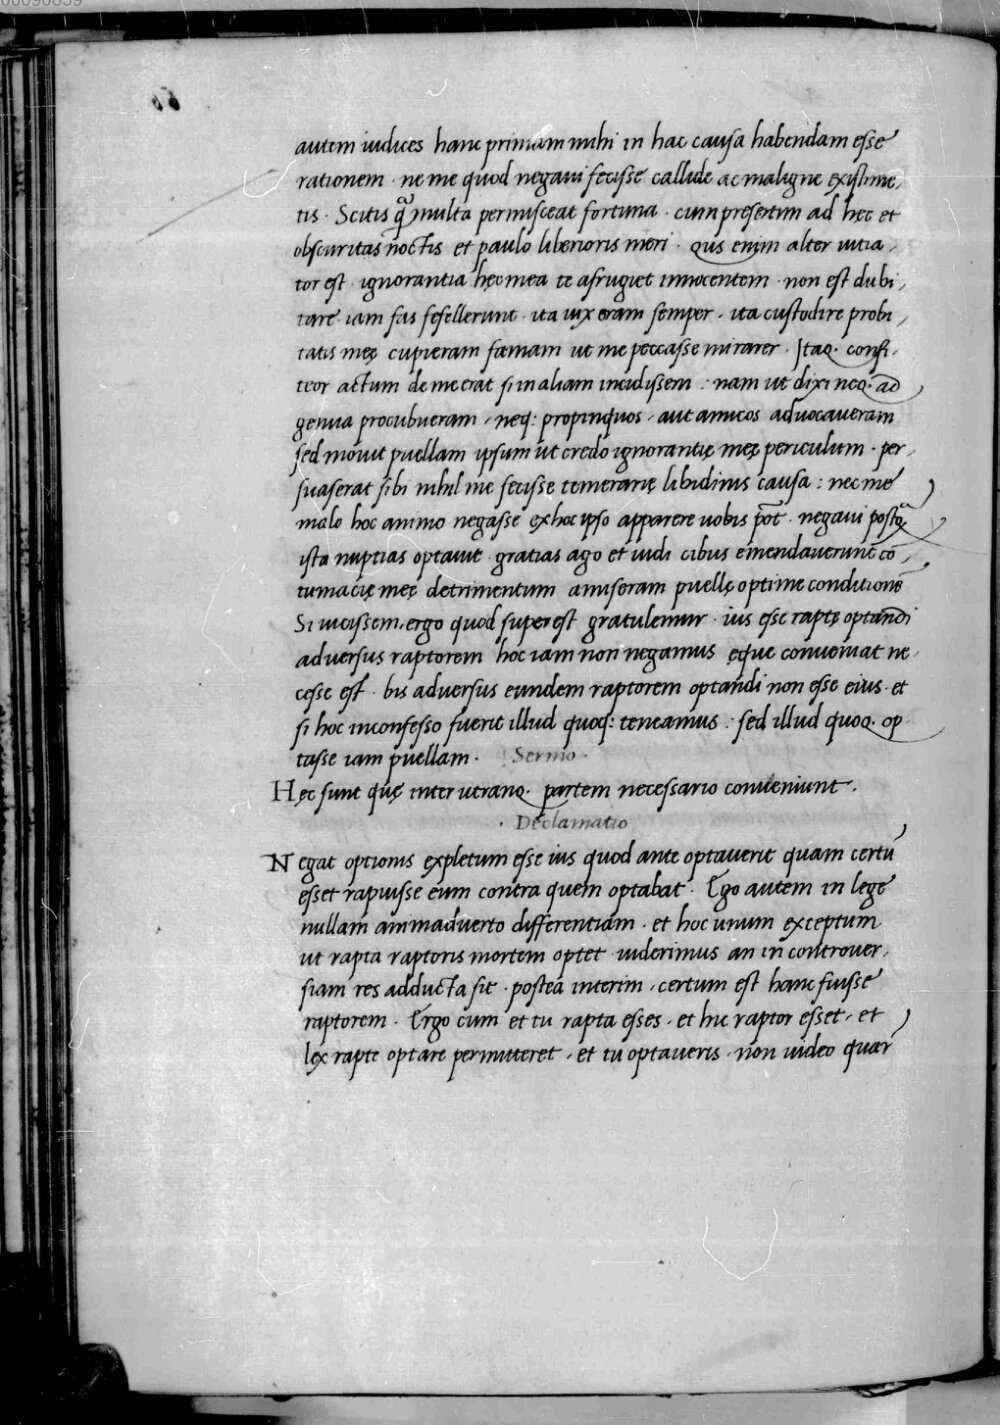 00090859
autem iudices hanc primam mihi in hac causa habendam esse
rationem · ne me quod negaui fecisse callide ac maligne existime,
tis · Scitis q̃ multa permisceat fortuna · cum presertim ad hec et
obscuritas noctis et paulo liberioris meri · Qus enim alter uitia,
tor est · ignorantia hęc mea te afrugiet innocentem · non est dubi,
tare · iam fas fefellerunt · ita uix eram semper · ita custodire probi,
tatis meę cupieram famam ut me peccasse mirarer · Itaq· confi,
teor actum de me erat si in aliam incidissem : nam ut dixi neq· ad
genua procubueram, neq: propinquos, aut amicos aduocaueram
sed mouit puellam ipsum ut credo ignorantię meę periculum · per,
suaserat sibi nihil me fecisse temerarię libidinis causa : nec me
malo hoc animo negasse ex hoc ipso apparere uobis pōt · negaui postq̃
ista nuptias optauit gratias ago et iudi cibus emendauerunt cō,
tumacię meę detrimentum amiseram puellę optime conditionē
Si uicissem, ergo quod superest gratulemur · ius esse raptę optandi
aduersus raptorem hoc iam non negamus ęque conueniat ne,
cesse est · bis aduersus eundem raptorem optandi non esse eius · et
si hoc inconfesso fuerit illud quoq: teneamus : sed illud quoq· op
tasse iam puellam · Sermo ·
Hęc sunt quę inter utranq· partem necessario conueniunt ·
· Declamatio
Negat optionis expletum esse ius quod ante optauerit quam certū
esset rapuisse eum contra quem optabat · Ego autem in lege
nullam animaduerto differentiam · et hoc unum exceptum
ut rapta raptoris mortem optet · uiderimus an in controuer,
siam res adducta sit · postea interim, certum est hanc fuisse
raptorem · Ergo cum et tu rapta esses, et hic raptor esset, et
lex rapte optare permitteret, et tu optaueris, non uideo quar